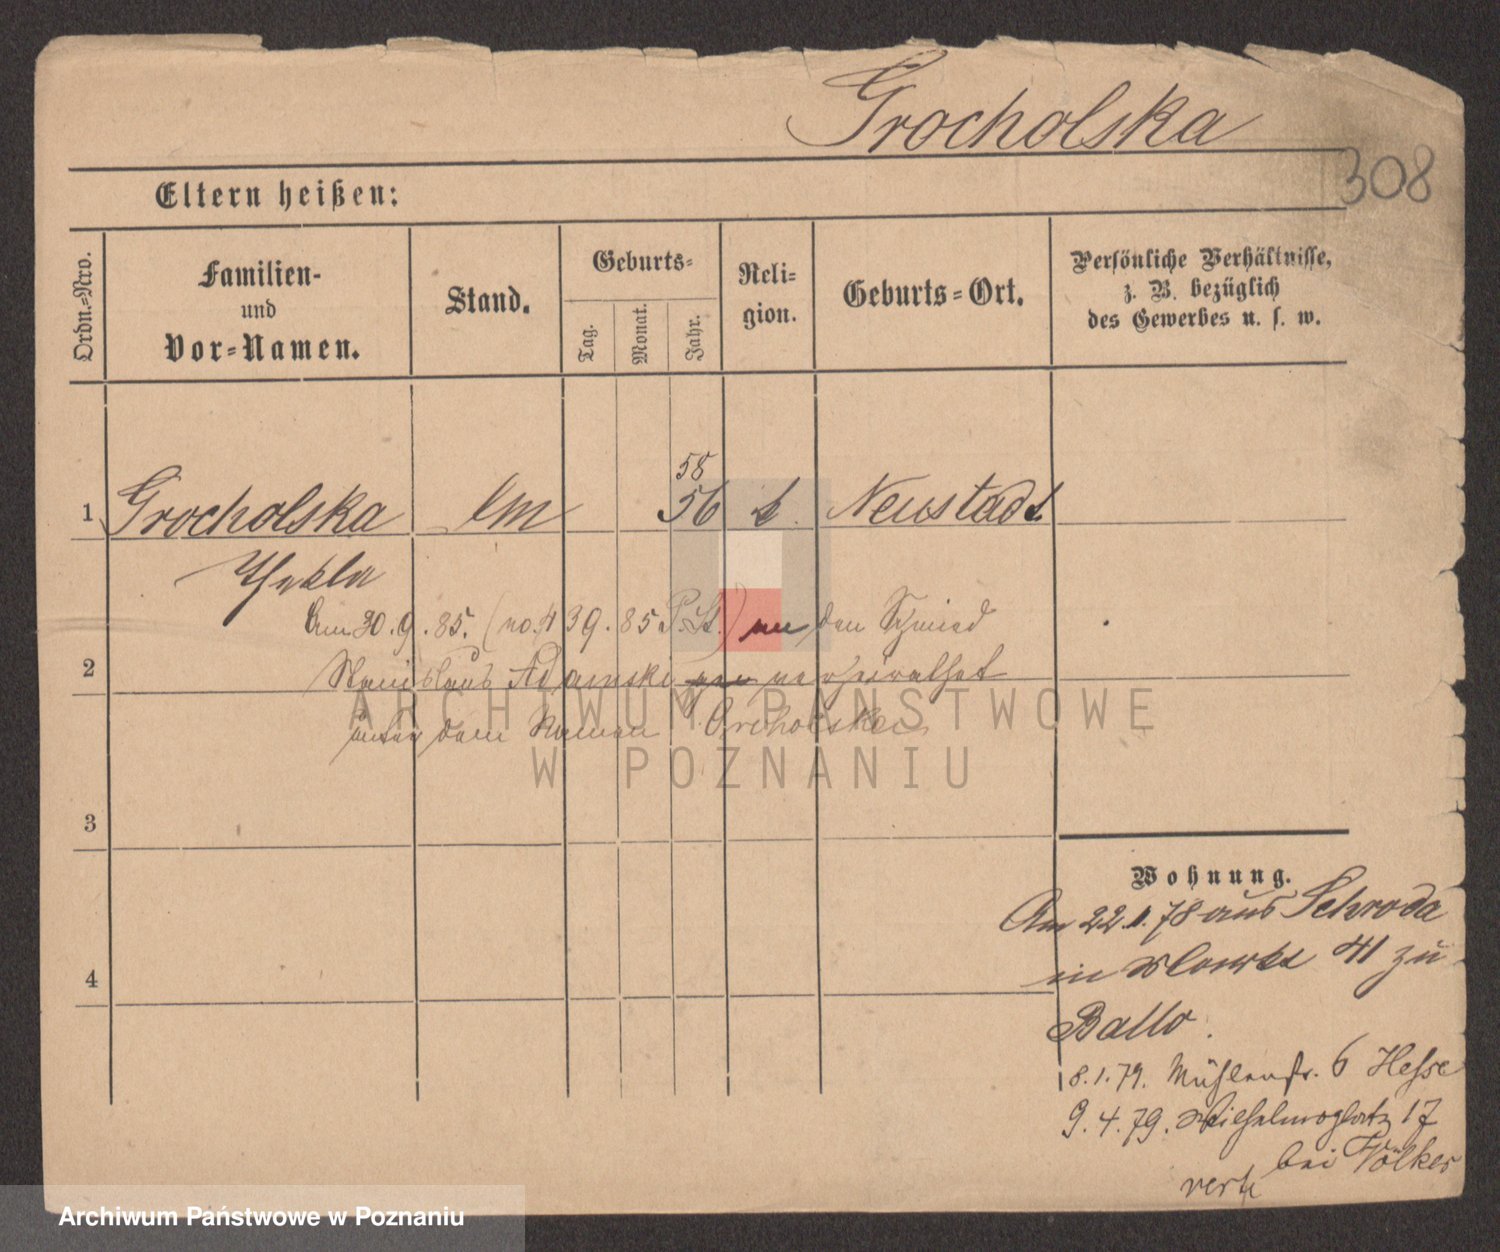 Grocholska
308
Eltern heißen:
Ordn.=Nro.
Familien-
und
Vor=Namen.
Stand.
Geburts=
Tag.
Monat.
Jahr.
Reli=
gion.
Geburts=Ort.
Persönliche Verhältnisse,
z. B. bezüglich
des Gewerbes u. s. w.
58
1 Grocholska 56 Neustadt
Thekla
Am 30.9.85. (no. 439.85 P. St.) an den Schmied
2 Stanislaus Adamski verheirathet
unter dem Namen Grocholska
ARCHIWUM PAŃSTWOWE
W POZNANIU
3
Wohnung.
Am 22.1.78 aus Schroda
in Markt 41 zu
4
Ballo.
8.1.79. Mühlenstr. 6 Hesse
9.4.79. Wilhelmsplatz 17
bei Völker
verte
Archiwum Państwowe w Poznaniu